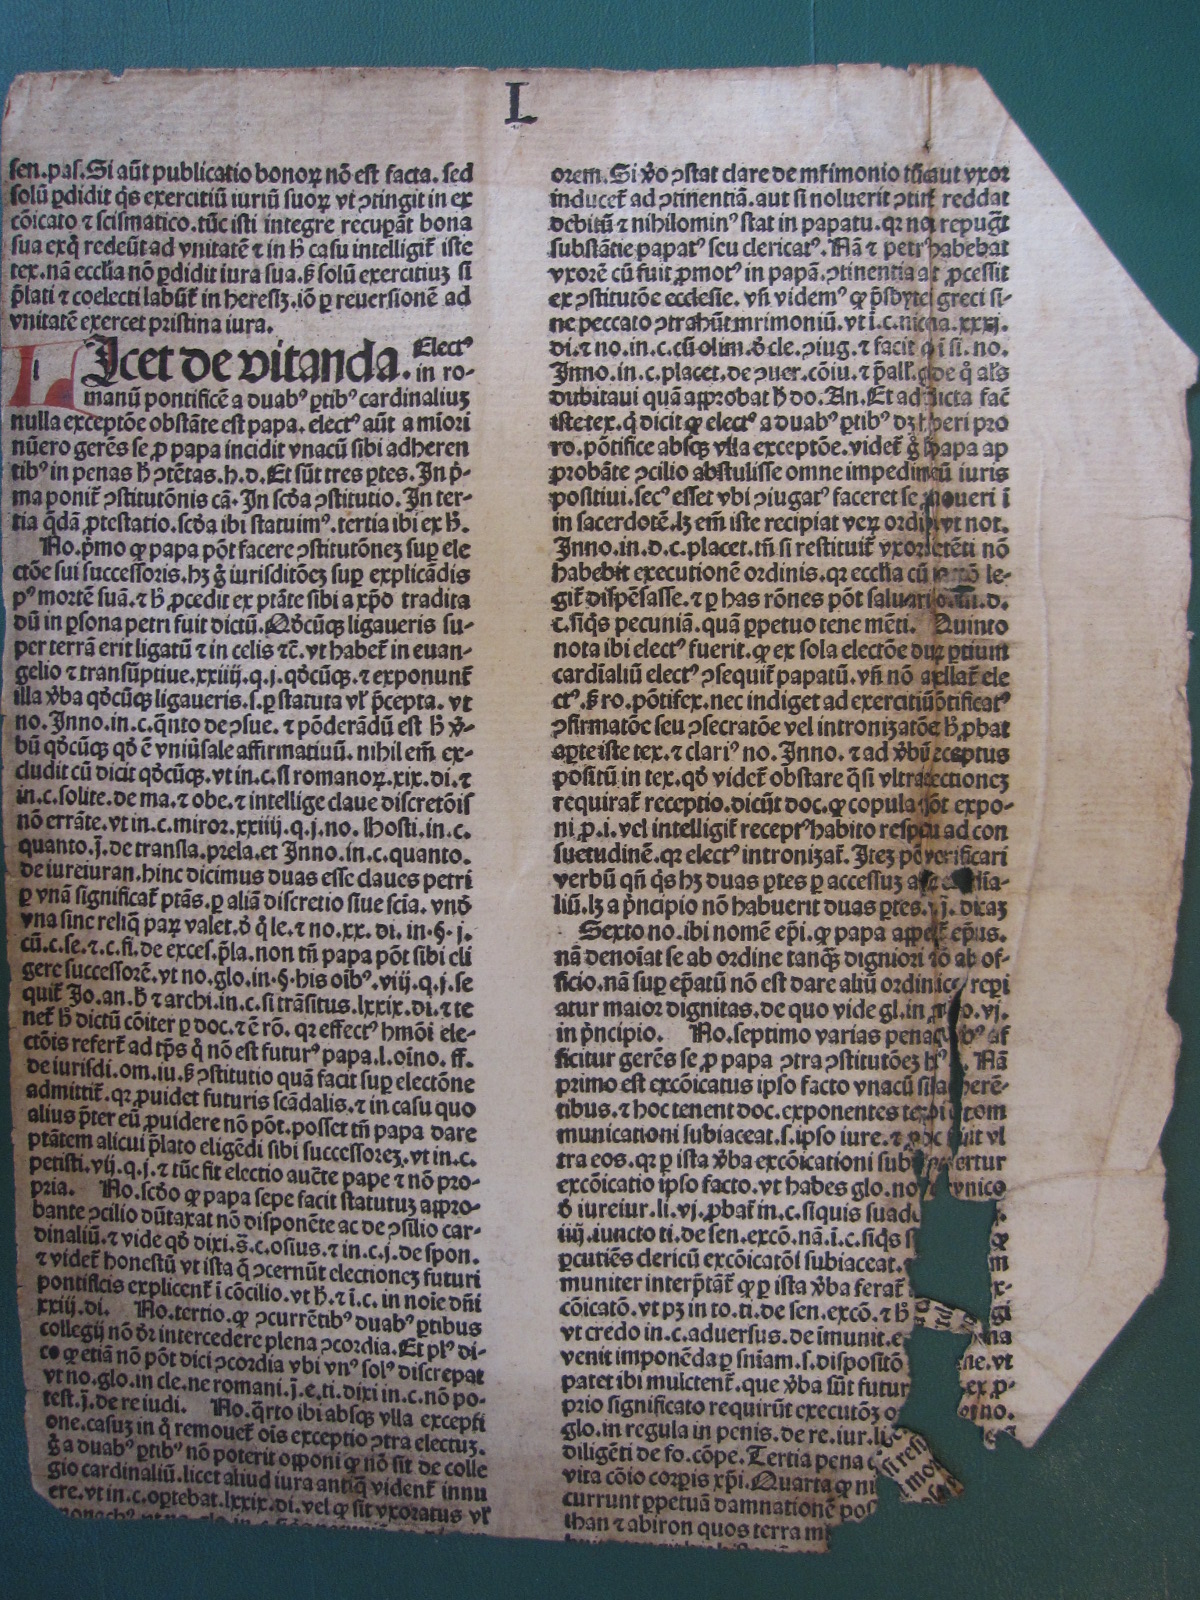 L
sen.pas.Si aūt publicatio bonoꝝ nō est facta. sed
solū ꝑdidit q̄s exercitiū iuriū suoꝝ vt ꝯtingit in ex
cōicato ⁊ scismatico.tūc isti integre recupāt bona
sua exq̄ redeūt ad vnitatē ⁊ in h̄ casu intelligit̄ iste
tex.nā ecclīa nō ꝑdidit iura sua.ꝫ solū exercitiuꝫ si
p̄lati ⁊ coelecti labūt̄ in heresiꝫ.iō ꝑ reuersionē ad
vnitatē exercet pristina iura.
LIcet de vitanda. Electꝰ
in ro-
manū pontificē a duabꝰ ꝑtibꝰ cardinaliuꝫ
nulla exceptōe obstāte est papa. electꝰ aūt a miori
nūero gerēs se ꝓ papa incidit vnacū sibi adheren
tibꝰ in penas h̄ ꝯtētas.h.d.Et sūt tres ꝑtes. In p̄-
ma ponit̄ ꝯstitutōnis cā. In scd̄a ꝯstitutio. In ter-
tia q̄dā ꝓtestatio.scd̄a ibi statuimꝰ.tertia ibi ex h̄.
No.p̄mo ꝙ papa pōt facere ꝯstitutōneꝫ sup ele
ctōe sui successoris.hꝫ ḡ iurisditōeꝫ sup explicādis
pꝰ mortē suā.⁊ h̄ ꝓcedit ex ptāte sibi a xp̄o tradita
dū in ꝑsona petri fuit dictū.Qd̄cūqꝫ ligaueris su-
per terrā erit ligatū ⁊ in celis ⁊c̄. vt habet̄ in euan-
gelio ⁊ transūptiue.xxiiij.q.j.qd̄cūqꝫ.⁊ exponunt̄
illa v̄ba qd̄cūqꝫ ligaueris.s.ꝑ statuta vl̄ p̄cepta. vt
no. Inno.in.c.q̄nto de ꝯsue. ⁊ pōderādū est h̄ v̄-
bū qd̄cūqꝫ qd̄ ē vniūsale affirmatiuū. nihil em̄ ex-
cludit cū dicit qd̄cūqꝫ.vt in.c.si romanoꝝ.xix.di.⁊
in.c.solite.de ma.⁊ obe.⁊ intellige claue discretōis
nō errāte.vt in.c.miror.xxiiij.q.j.no. Hosti.in.c.
quanto.j̄.de transla.prela.et Inno.in.c.quanto.
de iureiuran.hinc dicimus duas esse claues petri
ꝑ vnā significat̄ ptās.ꝑ aliā discretio siue scīa. vnd̄
vna sine reliq̄ paꝝ valet.d̄ q̄ le.⁊ no.xx. di. in.§. j.
cū.c.se.⁊.c.fi.de exces.p̄la.non tn̄ papa pōt sibi eli
gere successorē.vt no.glo.in.§.his oibꝰ.viij.q.j.se
quit̄ Jo.an.h̄ ⁊ archi.in.c.si trāsitus.lxxix.di.⁊ te
net̄ h̄ dictū cōiter ꝑ doc.⁊ ē rō. qr effectꝰ hmōi ele-
ctōis refert̄ ad tp̄s q̄ nō est futurꝰ papa.l.oīno. ff.
de iurisdi.om.iu.ꝫ ꝯstitutio quā facit sup electōne
admittit̄.qr ꝓuidet futuris scādalis.⁊ in casu quo
alius p̄ter eū ꝓuidere nō pōt.posset tn̄ papa dare
ptātem alicui p̄lato eligēdi sibi successoreꝫ.vt in.c.
petisti.vij.q.j.⁊ tūc fit electio aucte pape ⁊ nō pro-
pria. No.scd̄o ꝙ papa sepe facit statutuꝫ appro-
bante ꝯcilio dūtaxat nō disponēte ac de ꝯsilio car-
dinaliū.⁊ vide qd̄ dixi.s̄.c.osius.⁊ in.c.j.de spon.
⁊ videt̄ honestū vt ista q̄ ꝯcernūt electioneꝫ futuri
pontificis explicent̄ ī cōcilio.vt h̄.⁊ ī.c. in noīe dn̄i
xxiij.di. No.tertio.ꝙ ꝯcurrētibꝰ duabꝰ ꝑtibus
collegij nō dr̄ intercedere plena ꝯcordia. Et plꝰ di-
co ꝙ etiā nō pōt dici ꝯcordia vbi vnꝰ solꝰ discrepat
vt no.glo.in cle.ne romani.j̄.e.ti.dixi in.c.nō po-
test.j̄.de re iudi. No.q̄rto ibi absqꝫ vlla excepti
one.casuꝫ in q̄ remouet̄ oīs exceptio ꝯtra electuꝫ.
ḡ a duabꝰ ꝑtibꝰ nō poterit opponi ꝙ nō sit de colle
gio cardinaliū.licet aliud iura antiq̄ vident̄ innu
ere.vt in.c.oꝑtebat.lxxix.di.vel ꝙ sit vxoratus vl̄
orem. Si v̄o ꝯstat clare de mr̄imonio tūc aut vxor
inducet̄ ad ꝯtinentiā.aut si noluerit ꝯtiē reddat
debitū ⁊ nihilominꝰ stat in papatu.qr nō repugt̄
substātie papatꝰ seu clericatꝰ. Nā ⁊ petrꝰ habebat
vxorē cū fuit ꝓmotꝰ in papā.ꝯtinentia at̄ ꝓcessit
ex ꝯstitutōe ecclesie. vn̄ videmꝰ ꝙ p̄sbyteri greci si-
ne peccato ꝯtrahūt mrimoniū.vt ī.c.nicena.xxxj.
di.⁊ no.in.c.cū olim.d̄ cle.ꝯiug.⁊ facit q̄ ī si. no.
Inno.in.c.placet.de ꝯuer.cōiu.⁊ p̄all. de q̄ al̄s
dubitaui quā approbat h̄ do. An.Et ad dicta fac̄
iste tex.q̄ dicit ꝙ electꝰ a duabꝰ ꝑtibꝰ dꝫ h̄peri pro
ro.pōtifice absqꝫ vlla exceptōe.videt̄ ḡ papa ap
probāte ꝯcilio abstulisse omne impedimētū iuris
positiui.secꝰ esset vbi ꝯiugatꝰ faceret se ꝓmoueri ī
in sacerdotē.lꝫ em̄ iste recipiat veꝝ ordinē vt not.
Inno.in.d.c.placet.tn̄ si restituit̄ vxori petēti nō
habebit executionē ordinis.qr ecclīa cū le-
git̄ dispēsasse.⁊ ꝑ has rōnes pōt saluari d.
c.siqs pecuniā.quā ꝑpetuo tene mēti. Quinto
nota ibi electꝰ fuerit.ꝙ ex sola electōe duaꝝ ꝑtium
cardīaliū electꝰ ꝯsequit̄ papatū.vn̄ nō appellat̄ ele
ctꝰ.ꝫ ro.pōtifex.nec indiget ad exercitiū pōtificatꝰ
ꝯfirmatōe seu ꝯsecratōe vel intronizatōe h̄ ꝓbat
apte iste tex.⁊ clariꝰ no. Inno. ⁊ ad v̄bū receptus
positū in tex.qd̄ videt̄ obstare q̄si vltra electioneꝫ
requirat̄ receptio.dicūt doc.ꝙ copula pōt expo-
ni ꝓ.i.vel intelligit̄ receptꝰ habito respectu ad con
suetudinē.qr electꝰ intronizat̄. Iteꝫ pōt verificari
verbū qn̄ q̄s hꝫ duas ꝑtes ꝑ accessuꝫ alia-
liū.lꝫ a p̄ncipio nō habuerit duas ꝑtes. j̄. dicaꝫ
Sexto no.ibi nomē ep̄i.ꝙ papa appellat̄ ep̄us.
nā denoīat se ab ordine tanq̄ꝫ digniori iō ab of-
ficio.nā sup ep̄atū nō est dare aliū ordinē repi
atur maior dignitas.de quo vide gl.in ꝓ.o.vj.
in p̄ncipio. No.septimo varias penas qbꝰ af
ficitur gerēs se ꝓ papa ꝯtra ꝯstitutōeꝫ hꝰ. Nā
primo est excōicatus ipso facto vnacū sibi adherē-
tibus.⁊ hoc tenent doc.exponentes tex. ibi excom
municationi subiaceat.s.ipso iure.⁊ hoc fuit vl
tra eos.qr ꝑ ista v̄ba excōicationi sub infertur
excōicatio ipso facto.vt habes glo.no. vnico
d̄ iureiur.li.vj.ꝓbat̄ in.c.siquis suad
iiij.iuncto ti.de sen.excō.nā.ī.c.siqs s ꝙ
ꝑcutiēs clericū excōicatōi subiaceat. m
muniter interp̄tāt̄ ꝙ ꝑ ista v̄ba ferat̄ x-
cōicatō.vt pꝫ in to.ti.de sen.excō.⁊ h̄ gi
vt credo in.c.aduersus.de īmunit.e na
venit imponēda ꝑ sn̄iam.s.dispositō ne.vt
patet ibi mulctent̄.que v̄ba sūt futur ex ꝓ-
prio significato requirūt executōꝫ o no.
glo.in regula in penis.de re.iur.li
diligēti de fo.cōpe.Tertia pena
vita cōio corꝑis xp̄i.Quarta ꝙ ni
currunt ꝑpetuā damnationē pos
than ⁊ abiron quos terra